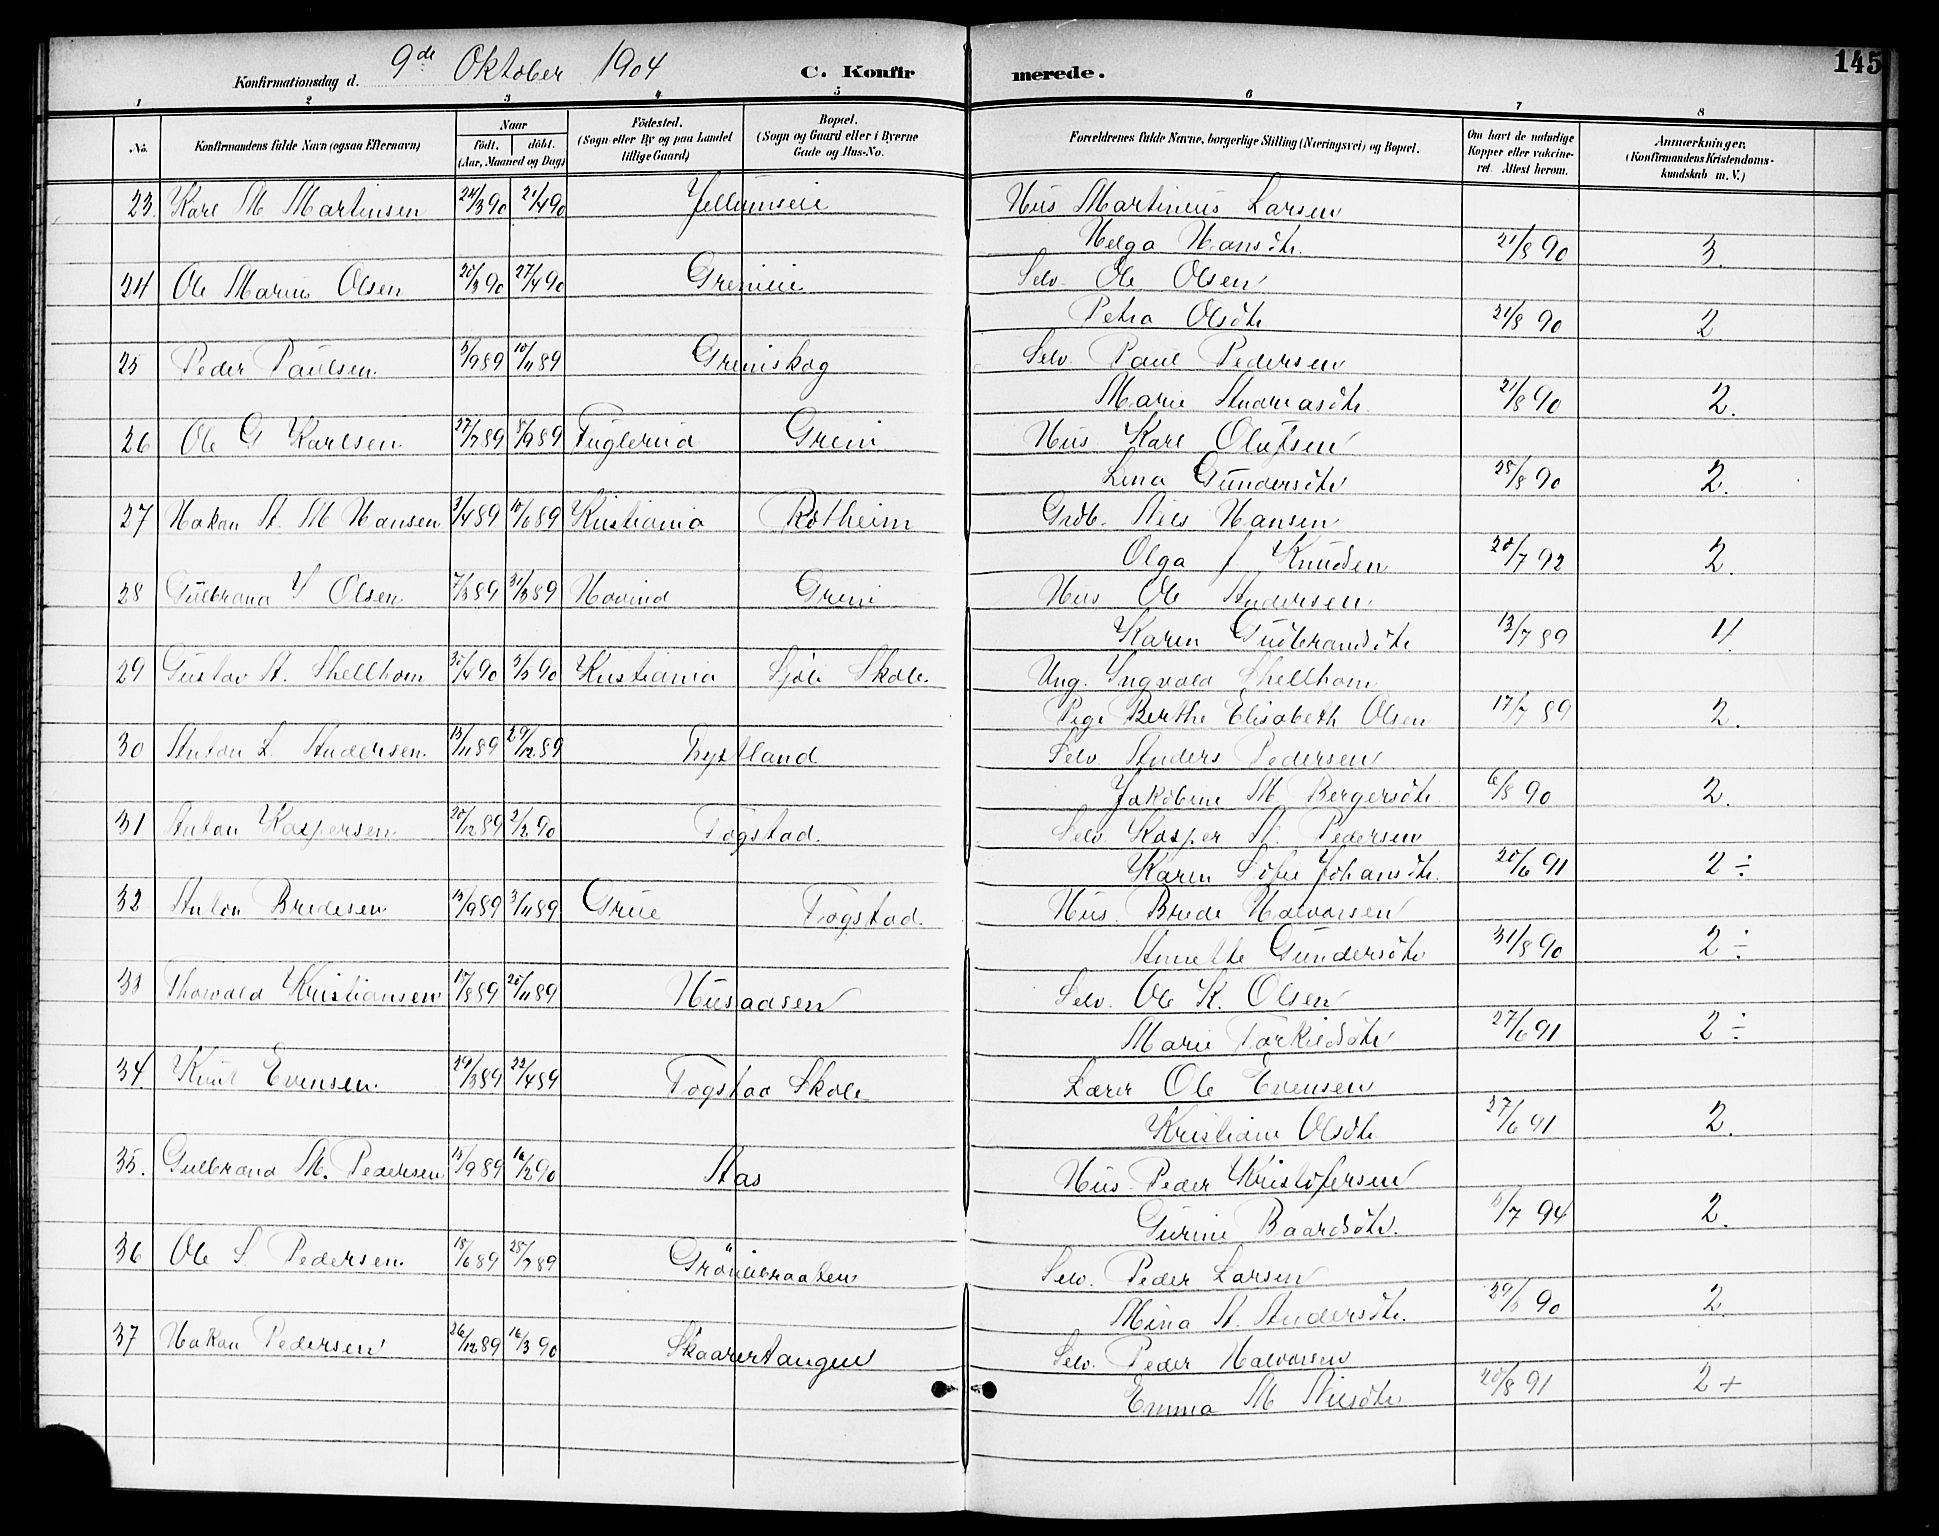 145
Konfirmationsdag d. 9de Oktober 1904 C. Konfirmerede.
1 2 3 4 5 6 7 8
No. Konfirmandens fulde Navn (ogsaa Efternavn) Naar født. døbt. (Aar, Maaned og Dag) Fødested. (Sogn eller By og paa Landet tillige Gaard) Bopæl. (Sogn og Gaard eller i Byerne Gade og Hus-No. Forældrenes fulde Navne, borgerlige Stilling (Næringsvei) og Bopæl. Om havt de naturlige Kopper eller vakcineret. Attest herom. Anmærkninger. (Konfirmandens Kristendomskundskab m. V.)
23 Karl M Martinsen 24/3 90 21/4 90 Jellumseie Hus Martinius Larsen
Helga Hansdtr. 21/8 90 3.
24 Ole Marius Olsen 20/3 90 27/4 90 Grenieie Selv. Ole Olsen
Petra Olsdtr 21/8 90 2
25 Peder Paulsen 5/9 89 10/11 89 Greniskog Selv. Paul Pedersen
Marie Andreasdtr. 21/8 90 2.
26 Ole G Karlsen 27/7 89 8/9 89 Fuglerud Greni Hus. Karl Olufsen
Lina Gundersdtr 25/8 90 2.
27 Hakon A. M Hansen 3/4 89 10/6 89 Kristiania Rotheim Grdb. Nils Hansen
Olga f Knudsen 20/7 92 2.
28 Gulbrand J Olsen 7/3 89 31/3 89 Hovind Greni Hus Ole Andersen
Karen Gudbrandsdtr 13/7 89 4.
29 Gustav A. Shellhom 30/4 90 Kristiania Sjøli Skole. Ung. Yngvald Shellhom
Pige Berthe Elisabeth Olsen 17/7 89 2.
30 Anton L. Andersen. 13/11 89 29/12 89 Selv. Anders Pedersen
Jakobine M. Bergersdtr 6/8 90 2.
31 Anton Kaspersen 20/12 89 2/2 90 Fogstad. Selv. Kasper A. Pedersen
Karen Sofie Johansdtr. 20/6 91 2 ÷
32 Anton Bredesen 13/9 89 3/11 89 Grue Fogstad. Hus. Brede Halvorsen
Annette Gundersdtr 31/8 90 2 ÷
33 Thorvald Kristiansen 17/8 89 20/11 89 Husaasen Selv. Ole K. Olsen
Marie Torkildsdtr 27/6 91 2 ÷
34. Knut Evensen. 29/3 89 22/4 89 Fogstad Skole Lærer Ole Evensen
Kristiane Olsdtr 27/6 91 2.
35. Gulbrand M. Pedersen 13/9 89 16/2 90 Aas Hus. Peder Kristofersen
Gurine Baardsdtr. 5/7 94 2.
36 Ole S Pedersen. 18/6 89 28/7 89 Grønebraaten Selv. Peder Larsen
Mina A. Andersdtr. 29/3 90 2
37 Hakon Pedersen 26/12 89 16/3 90 Skaarertangen Selv. Peder Halvorsen
Emma M Nilsdtr 20/8 91 2 +